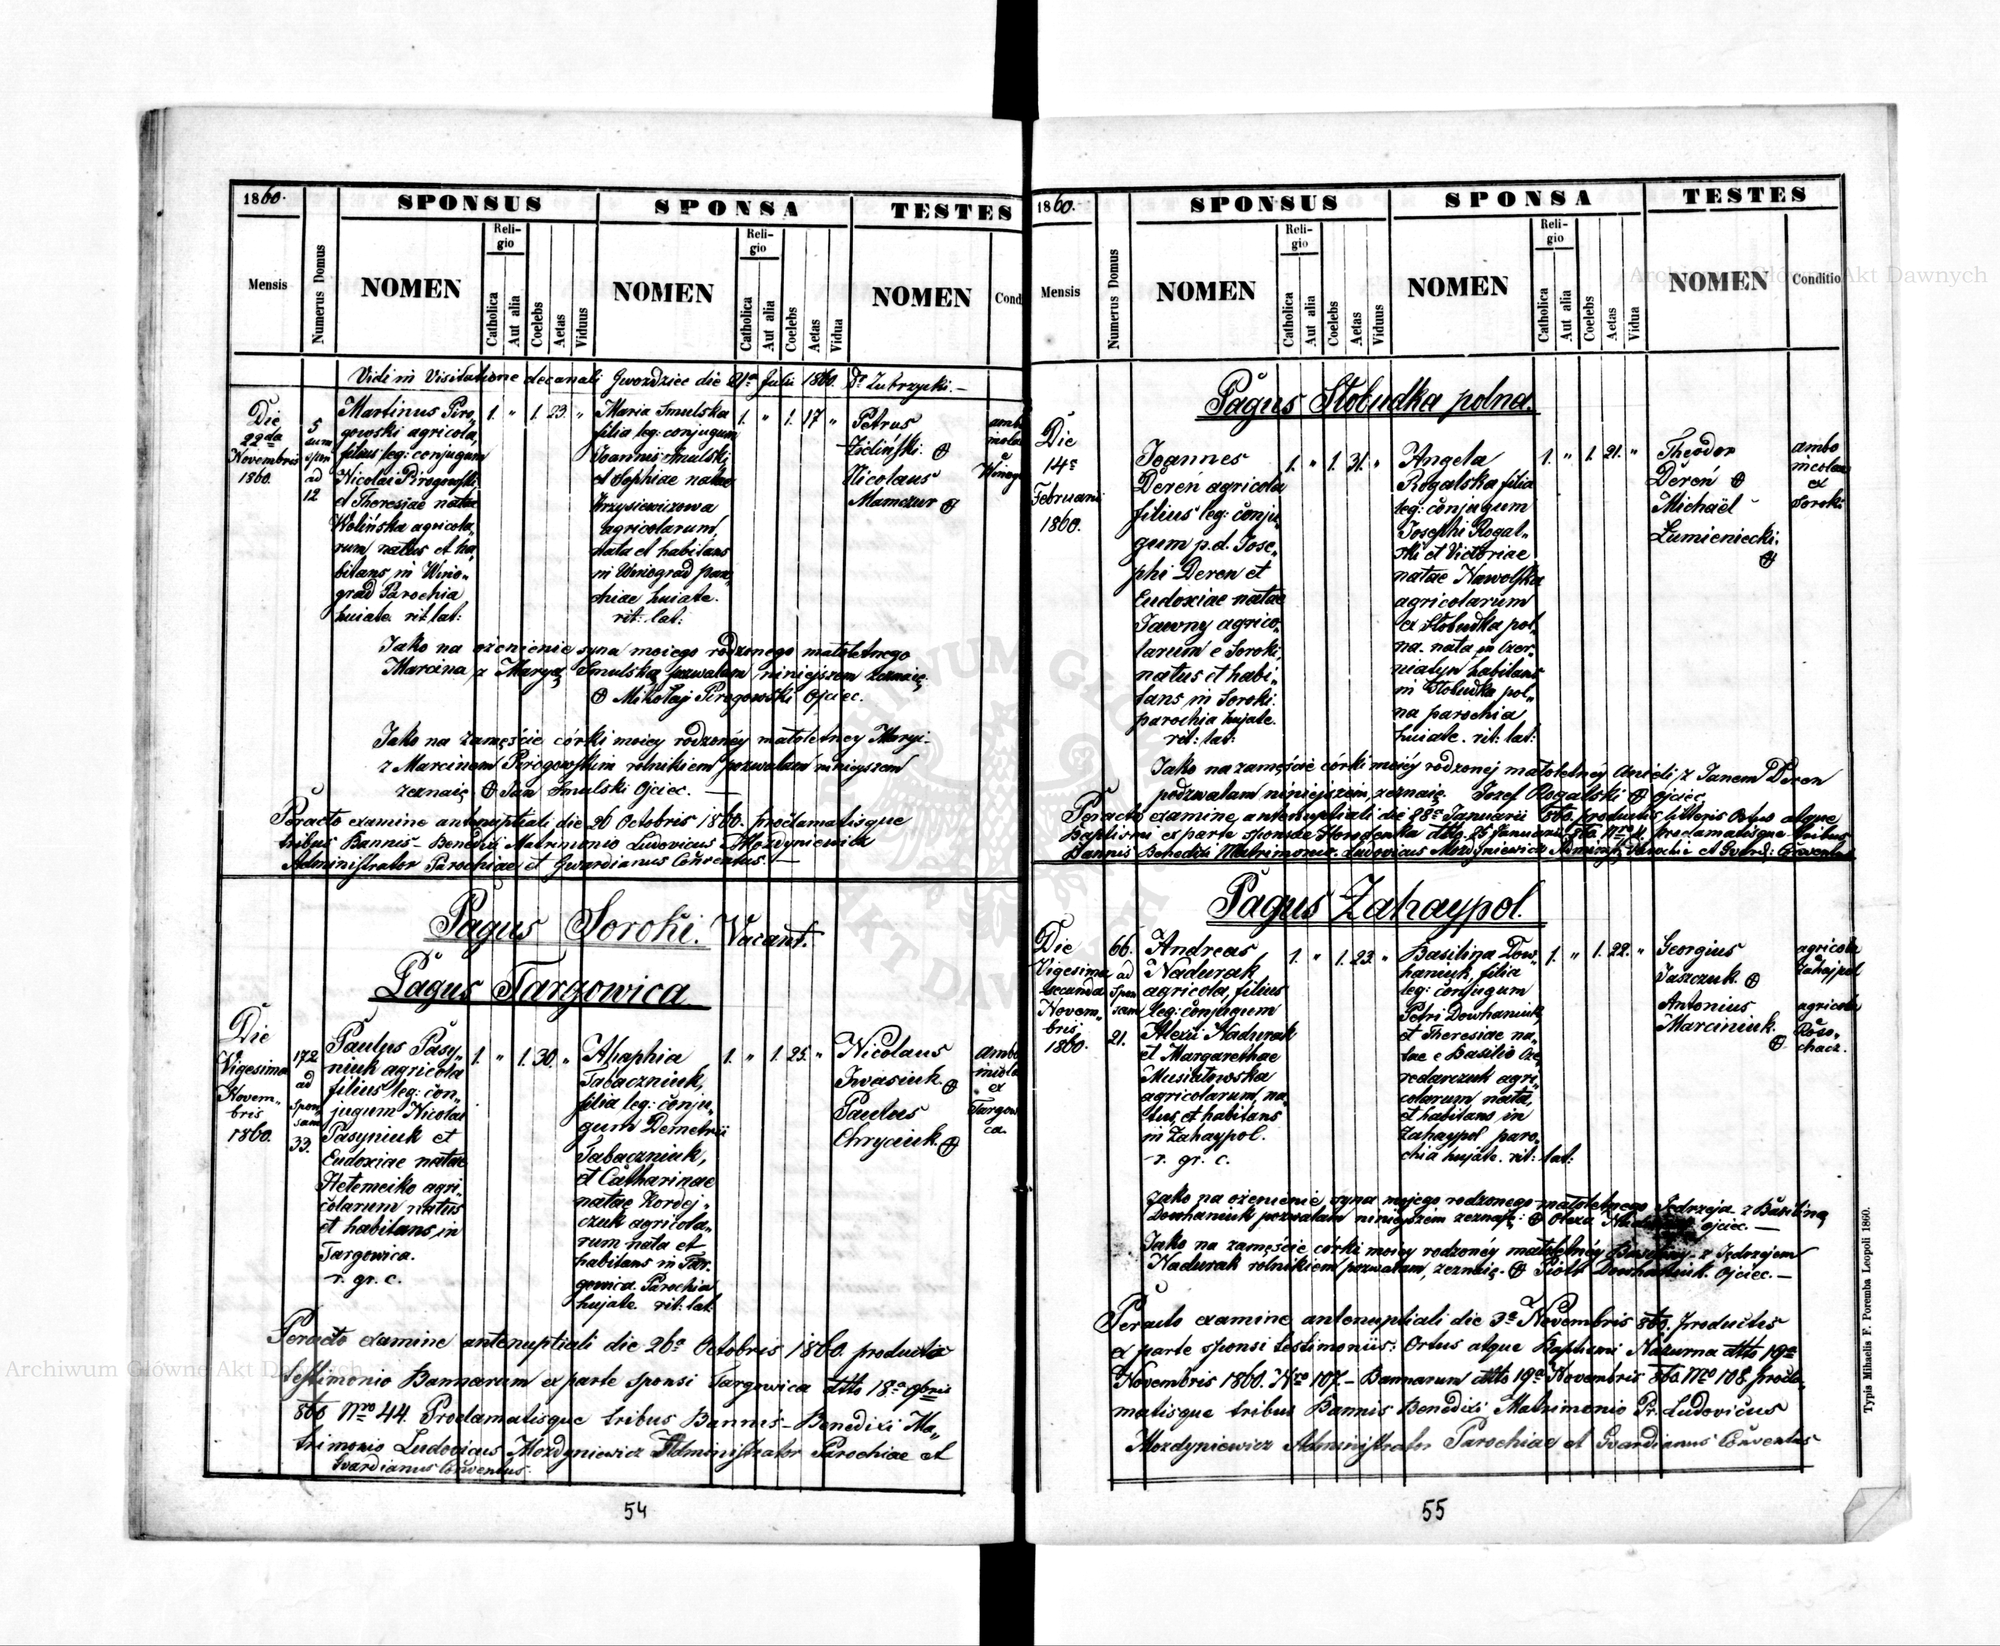 1860.
SPONSUS
SPONSA
TESTES
Mensis
Numerus Domus
NOMEN
Religio
Catholica
Aut alia
Coelebs
Aetas
Viduus
NOMEN
Religio
Catholica
Aut alia
Coelebs
Aetas
Vidua
NOMEN
Cond
Vidi in Visitatione decanali Gwozdziec die 21a Julii 1860. Zubrzycki.—
Die
22da
Novembris
1860.
5
ad
12
Martinus Piro„
gowski agricola,
filius leg: conjugum
Nicolai Pirogowski
et Theresiae natae
Wolińska agricola„
rum, natus et ha„
bitans in Wino„
grad Parochia
huiate. rit. lat:
1. „ 1. 23. „
Maria Smulska
filia leg: conjugum
Joannis Smulski
et Sophiae natae
Krzysiewiczowa
agricolarum,
nata et habitans
in Winograd paro„
chiae huiate.
rit: lat:
1. „ 1. 17 „
Petrus
Zieliński. ⊕
Nicolaus
Mamczur ⊕
Jako na ożenienie syna mojego rodzonego małoletnego
Marcina z Maryą Smulską pozwalam niniejszem zeznaię
⊕ Mikołaj Pirogowski Ojciec.
Jako na zamęście córki moiey rodzonéy małoletney Maryi
z Marcinem Pirogowskim rolnikiem pozwalam niniejszem
zeznaię ⊕ Jan Smulski Ojciec. —
Peracto examine antenuptiali die 20 Octobris 1860. proclamatisque
tribus Bannis – Benedixi Matrimonio Ludovicus Mozdyniewicz
Administrator Parochiae et Gwardianus Conventus. —
Pagus Soroki. Vacant.
Pagus Targowica
Die
Vigesima
Novem„
bris
1860.
172
ad
spon
sam
33.
Paulus Pasy„
niuk agricola
filius leg: con„
jugum Nicolai
Pasyniuk et
Eudoxiae natae
Hetemeiko agri„
colarum natus
et habitans in
Targowica.
r. gr. c.
1. „ 1. 30. „
Ahaphia
Tabaczniuk,
filia leg: conju„
gum Demetrii
Tabaczniuk,
et Catharinae
natae Kordej„
czuk agricola„
rum nata et
habitans in Tar„
gowica. Parochia
hujate. rit: lat
1. „ 1. 25. „
Nicolaus
Iwasiuk ⊕
Paulus
Chryciuk. ⊕
ex
Targowi
ca.
Peracto examine antenuptiali die 26a Octobris 1860. producto
testimonio Bannorum ex parte sponsi Targowica dtto 18a 9bris
860 Nro 44. Proclamatisque tribus Bannis – Benedixi Ma„
trimonio Ludovicus Mozdyniewicz Administrator Parochiae et
Gvardianus Conventus.
54
1860.
SPONSUS
SPONSA
TESTES
Mensis
Numerus Domus
NOMEN
Religio
Catholica
Aut alia
Coelebs
Aetas
Viduus
NOMEN
Religio
Catholica
Aut alia
Coelebs
Aetas
Vidua
NOMEN
Conditio
Pagus Słobudka polna.
Die
14a
Februarii
1860.
Joannes
Dereń agricola
filius leg: conju„
gum p. d. Jose„
phi Deren et
Eudoxiae natae
Jawny agrico„
larum e Soroki,
natus et habi„
tans in Soroki.
parochia hujate.
rit: lat:
1. „ 1. 31. „
Angela
Rogalska filia
leg: conjugum
Josephi Rogal„
ski et Victoriae
natae Nawolska
agricolarum
ex Słobudka pol„
na. nata in Czer„
niatyn habitans
in Słobudka pol„
na parochia
huiate. rit: lat:
1. „ 1. 21. „
Theodor
Dereń ⊕
Michaël
Łumieniecki.
⊕
ambo
incolae
ex
Soroki
Jako na zamęście córki moiéy rodzonej małoletnéy Anieli z Janem Deren
podzwalam niniejszem, zeznaię. Jozef Rogalski ⊕ Ojciec.
Peracto examine, antenuptiali die 28a Januarii 860. productis litteris Ortus atque
Baptismi ex parte sponsae Horodenka dtto. 26 Januarii 860. Nro 11. proclamatisque tribus
Bannis Benedixi Matrimonio. Ludovicus Mozdyniewicz Administ. Parochie et Gvard: Conventus
Pagus Zahaypol.
Die
Vigesima
secunda
Novem„
bris
1860.
66.
ad
spon
sam
21.
Andreas
Nadurak
agricola, filius
leg: conjugum
Alexii Nadurak
et Margarethae
Musiatowska
agricolarum, na„
tus, et habitans
in Zahaypol.
r. gr. c.
1. „ 1. 23. „
Basilina Dow„
haniuk, filia
leg: conjugum
Petri Dowhaniuk,
et Theresiae na„
tae e Basilio Ole„
redarczuk agri„
colarum nata,
et habitans, in
Zahaypol paro„
chia hujate. rit: lat:
1. „ 1. 22. „
Georgius
Jaszczuk. ⊕
Antonius
Marciniuk.
⊕
agricola
Zahajpol
agricola
Roso„
chacz.
Jako na ożenienie syna mojego rodzonego małoletnego Jędrzeja z Basiliną
Dowhaniuk pozwalam niniejszem zeznaję: ⊕ Olexa Ojciec. —
Jako na zamęście córki moiey rodzonéy małoletnéy z Jędrzejem
Nadurak rolnikiem pozwalam, zeznaię. ⊕ Piotr Dowhaniuk. Ojciec. —
Peracto examine antenuptiali die 3a Novembris 860. Productis
ex parte sponsi testimoniis: Ortus atque Baptismi Nazurna dtto 19a
Novembris 1860. Nro 107. – Bannorum dtto 19a Novembris 860. Nro 108. procla„
matisque tribus Bannis Benedixi Matrimonio Pr. Ludovicus
Mozdyniewicz Administrator Parochiae et Gvardianus Conventus
55
Typis Michaelis F. Poremba Leopoli 1860.
Archiwum Główne Akt Dawnych
Archiwum Główne Akt Dawnych